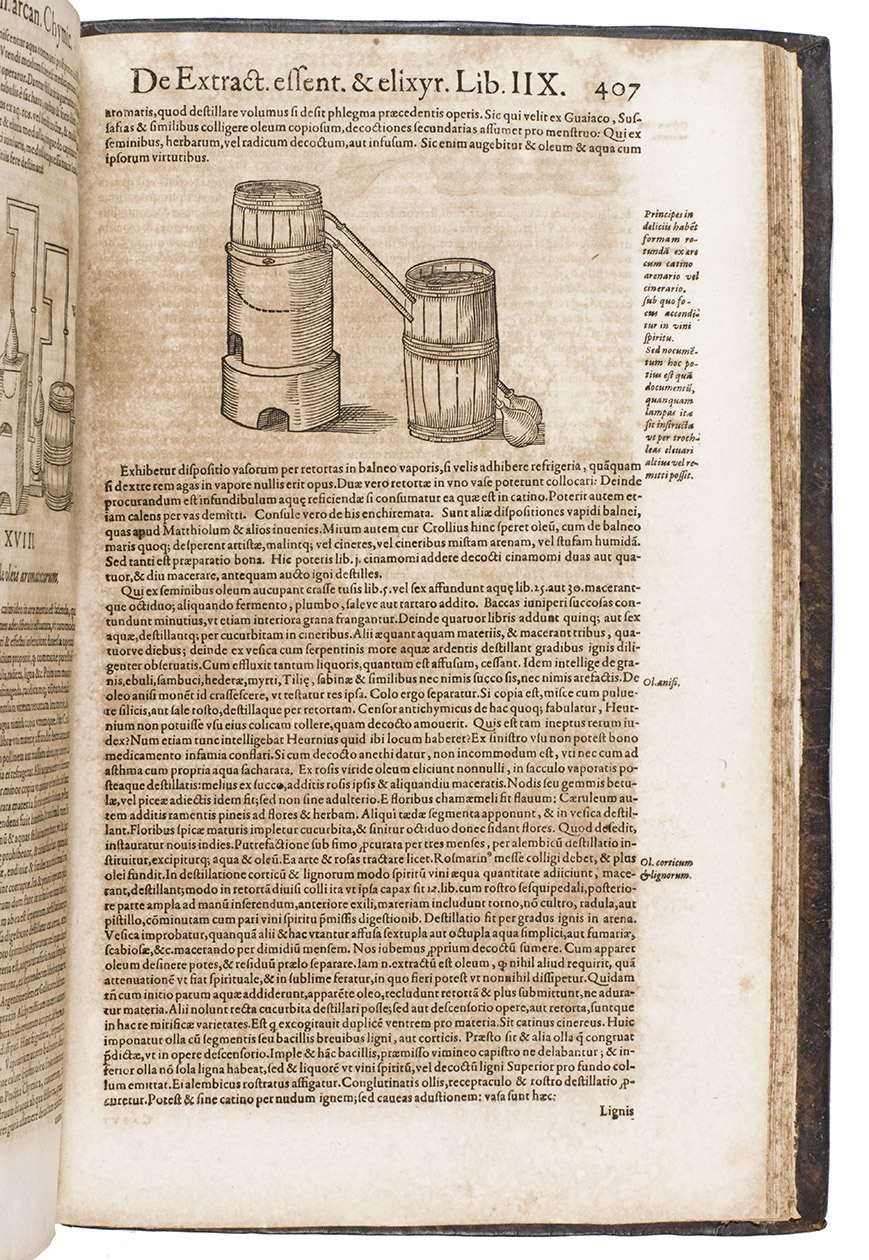 De Extract. essent. & elixyr. Lib. IIX. 407
aromatis,quod destillare volumus si desit phlegma præcedentis operis. Sic qui velit ex Guaiaco, Sus-
safias & similibus colligere oleum copiosum,decoctiones secundarias assumet pro menstruo: Qui ex
seminibus, herbarum,vel radicum decoctum,aut infusum. Sic enim augebitur & oleum & aqua cum
ipsorum virtutibus.
Principes in
deliciis habēt
formam ro-
tundā ex ære
cum catino
arenario vel
cinerario,
sub quo fo-
cus accendi-
tur in vini
spiritu.
Sed nocumē-
tum hoc po-
tius est quā
documentū,
quanquam
lampas ita
sit instructa
vt per troch-
leas eleuari
altius vel re-
mitti possit.
Exhibetur dispositio vasorum per retortas in balneo vaporis,si velis adhibere refrigeria, quāquam
si dextre rem agas in vapore nullis erit opus.Duæ vero retortæ in vno vase poterunt collocari: Deinde
procurandum est infundibulum aquę reficiendæ si consumatur ea quæ est in catino.Poterit autem et-
iam calens per vas demitti. Consule vero de his enchiremata. Sunt aliæ dispositiones vapidi balnei,
quas apud Matthiolum & alios inuenies.Mirum autem cur Crollius hinc speret oleū, cum de balneo
maris quoq; desperent artistæ,malintq; vel cineres,vel cineribus mistam arenam, vel stufam humidā.
Sed tanti est præparatio bona. Hic poteris lib.j. cinamomi addere decocti cinamomi duas aut qua-
tuor,& diu macerare, antequam aucto igni destilles.
Qui ex seminibus oleum aucupant crasse tusis lib.5.vel sex affundunt aquę lib.25.aut 30.macerant-
que octiduo; aliquando fermento, plumbo, sale ve aut tartaro addito. Baccas iuniperi succosas con-
tundunt minutius,vt etiam interiora grana frangantur.Deinde quatuor libris addunt quinq; aut sex
aquæ,destillantq; per cucurbitam in cineribus.Alii æquant aquam materiis, & macerant tribus, qua-
tuorve diebus; deinde ex vesica cum serpentinis more aquæ ardentis destillant gradibus ignis dili-
genter obseruatis.Cum effluxit tantum liquoris,quantum est affusum, cessant. Idem intellige de gra-
nis,ebuli,sambuci,hederæ,myrti, Tilię, sabinæ & similibus nec nimis succosis,nec nimis arefactis.De
Ol.anisi.
oleo anisi monēt id crassescere, vt testatur res ipsa. Colo ergo separatur.Si copia est,misce cum pulue-
re silicis,aut sale tosto,destillaque per retortam. Censor antichymicus de hac quoq; fabulatur, Heur-
nium non potuisse vsu eius colicam tollere,quam decocto amouerit. Quis est tam ineptus rerum iu-
dex?Num etiam tunc intelligebat Heurnius quid ibi locum haberet?Ex sinistro vsu non potest bono
medicamento infamia conflari.Si cum decocto anethi datur, non incommodum est, vti nec cum ad
asthma cum propria aqua sacharata. Ex rosis viride oleum eliciunt nonnulli, in sacculo vaporatis po-
steaque destillatis:melius ex succo,additis rosis ipsis & aliquandiu maceratis.Nodis seu gemmis betu-
læ,vel piceæ adiectis idem fit;sed non sine adulterio.E floribus chamæmeli fit flauum: Cæruleum au-
tem additis ramentis pineis ad flores & herbam. Aliqui tædæ segmenta apponunt, & in vesica destil-
lant.Floribus spicæ maturis impletur cucurbita,& sinitur octiduo donec sidant flores. Quod desedit,
instauratur nouis indies.Putrefactione sub fimo ꝓcurata per tres menses, per alembicū destillatio in-
stituitur,excipiturq; aqua & oleū.Ea arte & rosas tractare licet.Rosmarinꝰ messe colligi debet, & plus
Ol. corticum
& lignorum.
olei fundit.In destillatione corticū & lignorum modo spiritū vini æqua quantitate adiiciunt, mace-
rant,destillant;modo in retortā diuisi colli ita vt ipsa capax sit 12.lib.cum rostro sesquipedali,posterio-
re parte ampla ad manū inferendum,anteriore exili,materiam includunt torno,nō cultro, radula,aut
pistillo,cōminutam cum pari vini spiritu p̄missis digestionib. Destillatio fit per gradus ignis in arena.
Vesica improbatur,quanquā alii & hac vtantur affusa sextupla aut octupla aqua simplici,aut fumariæ,
scabiosæ,&c.macerando per dimidiū mensem. Nos iubemus ꝓprium decoctū sumere. Cum apparet
oleum desinere potes,& residuū prælo separare.Iam n.extractū est oleum, ꝙ nihil aliud requirit, quā
attenuationē vt fiat spirituale,& in sublime feratur,in quo fieri potest vt nonnihil dissipetur.Quidam
tn̄ cum initio parum aquæ addiderunt,apparēte oleo,recludunt retortā & plus submittunt,ne adura-
tur materia.Alii nolunt recta cucurbita destillari posse;sed aut descensorio opere,aut retorta,suntque
in hac re mirificæ varietates.Est q excogitauit duplicē ventrem pro materia.Sit catinus cinereus. Huic
imponatur olla cū segmentis seu bacillis breuibus ligni, aut corticis. Præsto sit & alia olla q̄ congruat
p̄dictæ,vt in opere descensorio.Imple & hāc bacillis,præmisso vimineo capistro ne delabantur; & in-
ferior olla nō sola ligna habeat,sed & liquorē vt vini spiritū,vel decoctū ligni Superior pro fundo col-
lum emittat.Ei alembicus rostratus affigatur.Conglutinatis ollis,receptaculo & rostro destillatio ꝓ-
curetur.Potest & sine catino per nudum ignem;sed caueas adustionem: vasa sunt hæc:
Lignis
XVIII.